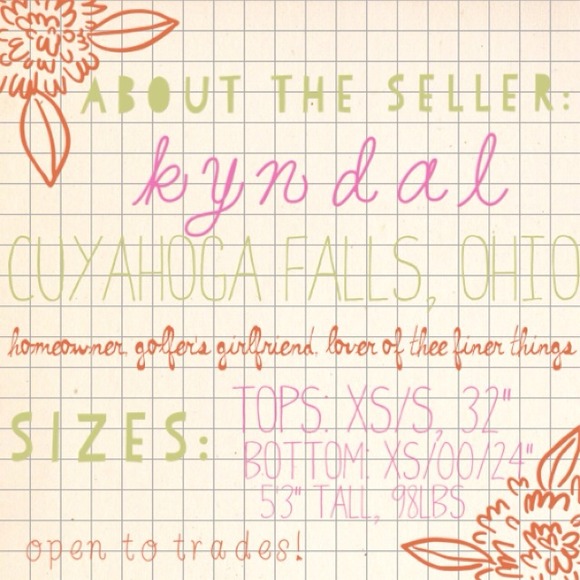 ABOUT THE SELLER:
kyndal
CUYAHOGA FALLS, OHIO
homeowner, golfer's girlfriend, lover of thee finer things
SIZES:
TOPS: XS/S, 32"
BOTTOM: XS/00/24"
5'3" TALL, 98LBS
open to trades!